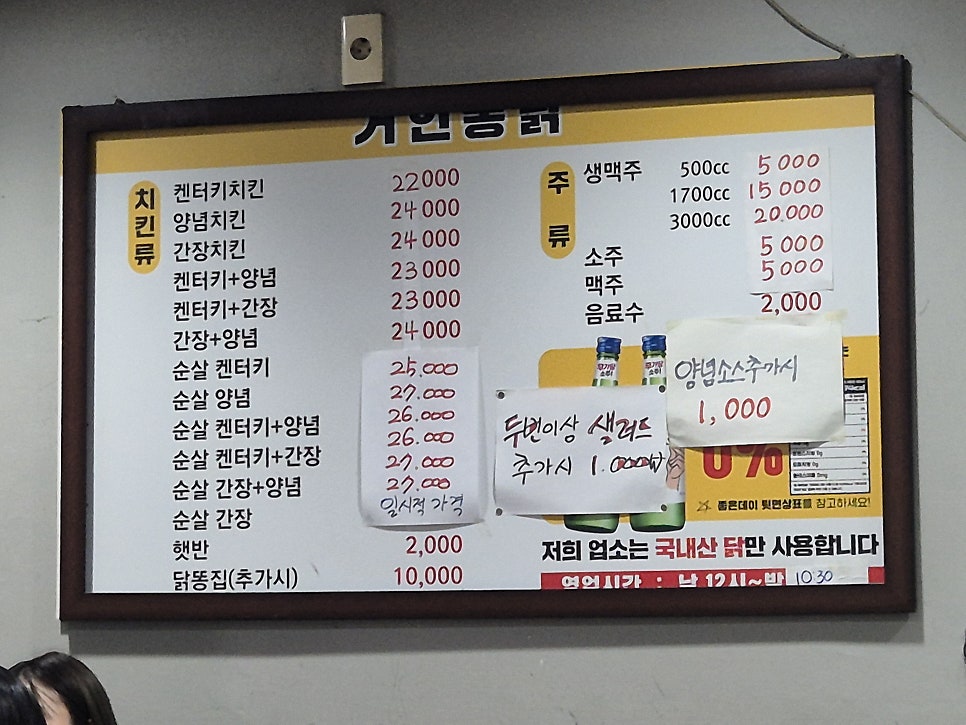 거인통닭
치킨류
켄터키치킨 22000
양념치킨 24000
간장치킨 24000
켄터키+양념 23000
켄터키+간장 23000
간장+양념 24000
순살 켄터키 25.000
순살 양념 27.000
순살 켄터키+양념 26.000
순살 켄터키+간장 26.000
순살 간장+양념 27.000
순살 간장 27.000
일시적 가격
햇반 2,000
닭똥집(추가시) 10,000
주류
생맥주 500cc 5000
1700cc 15000
3000cc 20.000
소주 5000
맥주 5000
음료수 2,000
양념소스추가시
1,000
두번이상 샐러드
추가시 1.000
무가당
소주!
무가당
소주!
0%
좋은데이 뒷면상표를 참고하세요!
저희 업소는 국내산 닭만 사용합니다
영업시간 : 낮 12시~밤 10:30